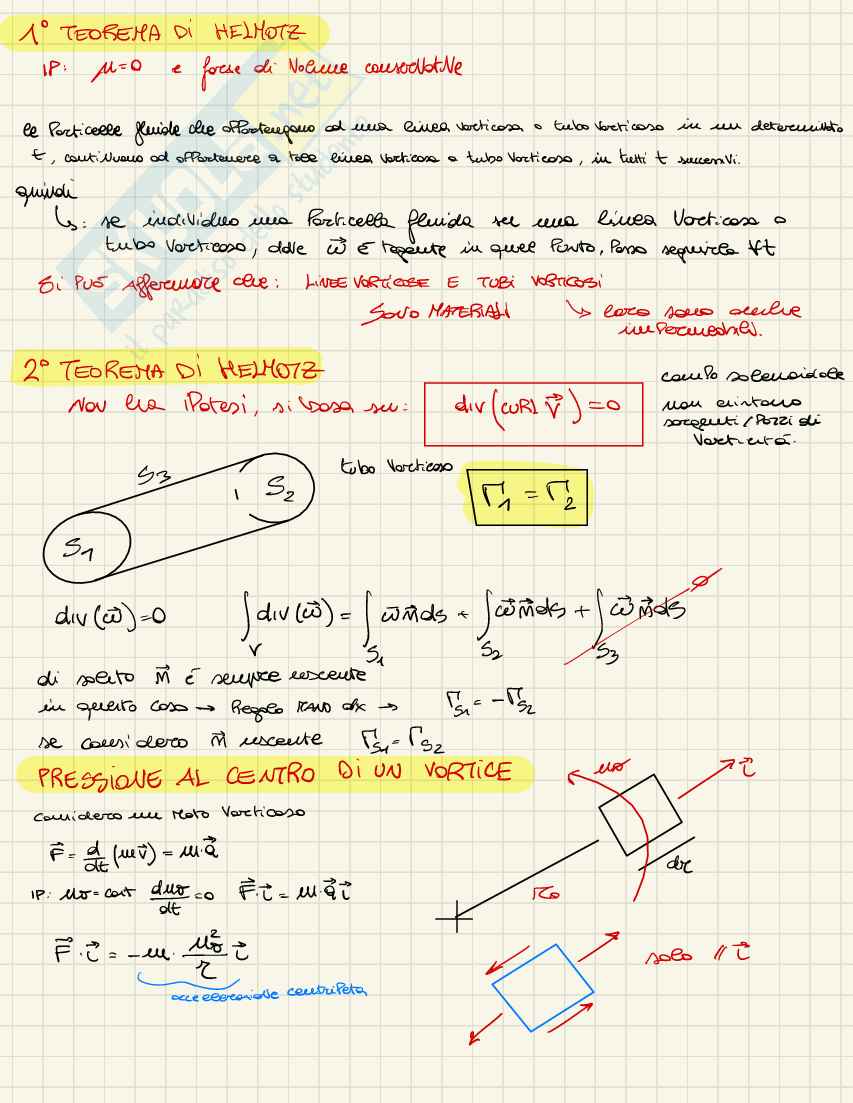 1° TEOREMA DI HELMOTZ
IP: μ=0 e forze di Volume conservative
le Particelle fluide che appartengono ad una linea vorticosa o tubo vorticoso in un determinato
t, continuano ad appartenere a tale linea vorticosa o tubo vorticoso, in tutti t successivi.
quindi
↳: se individuo una Particella fluida su una linea Vorticosa o
tubo Vorticoso, dove ω⃗ è tangente in quel Punto, Posso seguirla ∀t
Si PUÒ affermare che: LINEE VORTICOSE E TUBI VORTICOSI
SONO MATERIALI ↘ loro sono anche
impermeabili.
2° TEOREMA DI HELMOTZ
NON ha IPotesi, si basa su: div(CURL V⃗)=0
campo solenoidale
non esistono
sorgenti/Pozzi di
Vorticità.
S3
S1
S2
tubo Vorticoso
Γ1 = Γ2
div(ω⃗)=0 ∫V div(ω⃗) = ∫S1 ω⃗ n⃗ ds + ∫S2 ω⃗ n⃗ ds + ∫S3 ω⃗ n⃗ ds 0
di solito n⃗ è sempre uscente
in questo caso → Regola MANO dx → ΓS1 = -ΓS2
se considero n⃗ uscente ΓS1 = ΓS2
PRESSIONE AL CENTRO DI UN VORTICE
considero un Moto Vorticoso
F⃗ = d/dt (m v⃗) = m·a⃗
IP: uσ = cost duσ/dt = 0 F⃗·τ⃗ = m·a⃗ τ⃗
F⃗·τ⃗ = -m· uσ²/r τ⃗
accelerazione centripeta
uσ
τ⃗
dr
r0
solo // τ⃗
SKUOLA.net
il paradiso dello studente